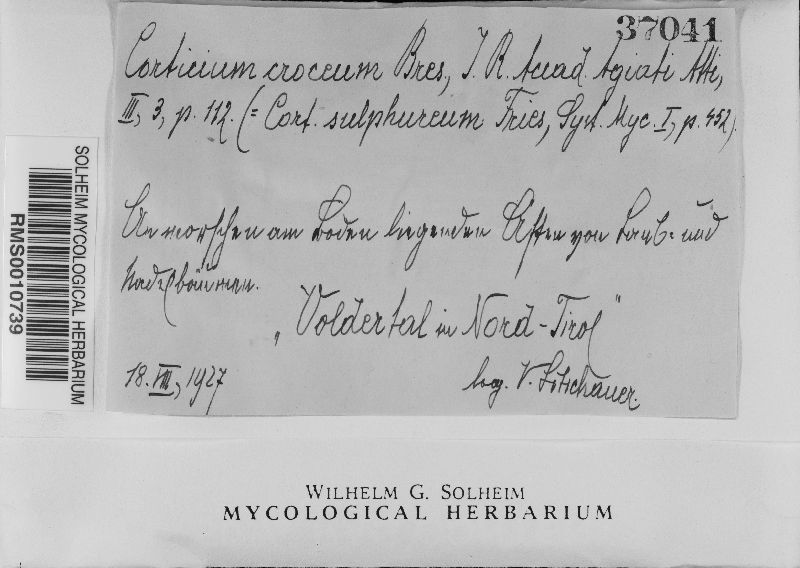 37041
Corticium croceum Bres., I. R. Accad. Agiati Atti,
III, 3, p. 112. (= Cort. sulphureum Fries, Syst. Myc. I, p. 452).
An morschen am Boden liegenden Ästen von Laub- und
Nadelbäumen.
"Voldertal in Nord-Tirol"
18. VIII, 1927
leg. V. Litschauer.
SOLHEIM MYCOLOGICAL HERBARIUM
RMS0010739
WILHELM G. SOLHEIM
MYCOLOGICAL HERBARIUM